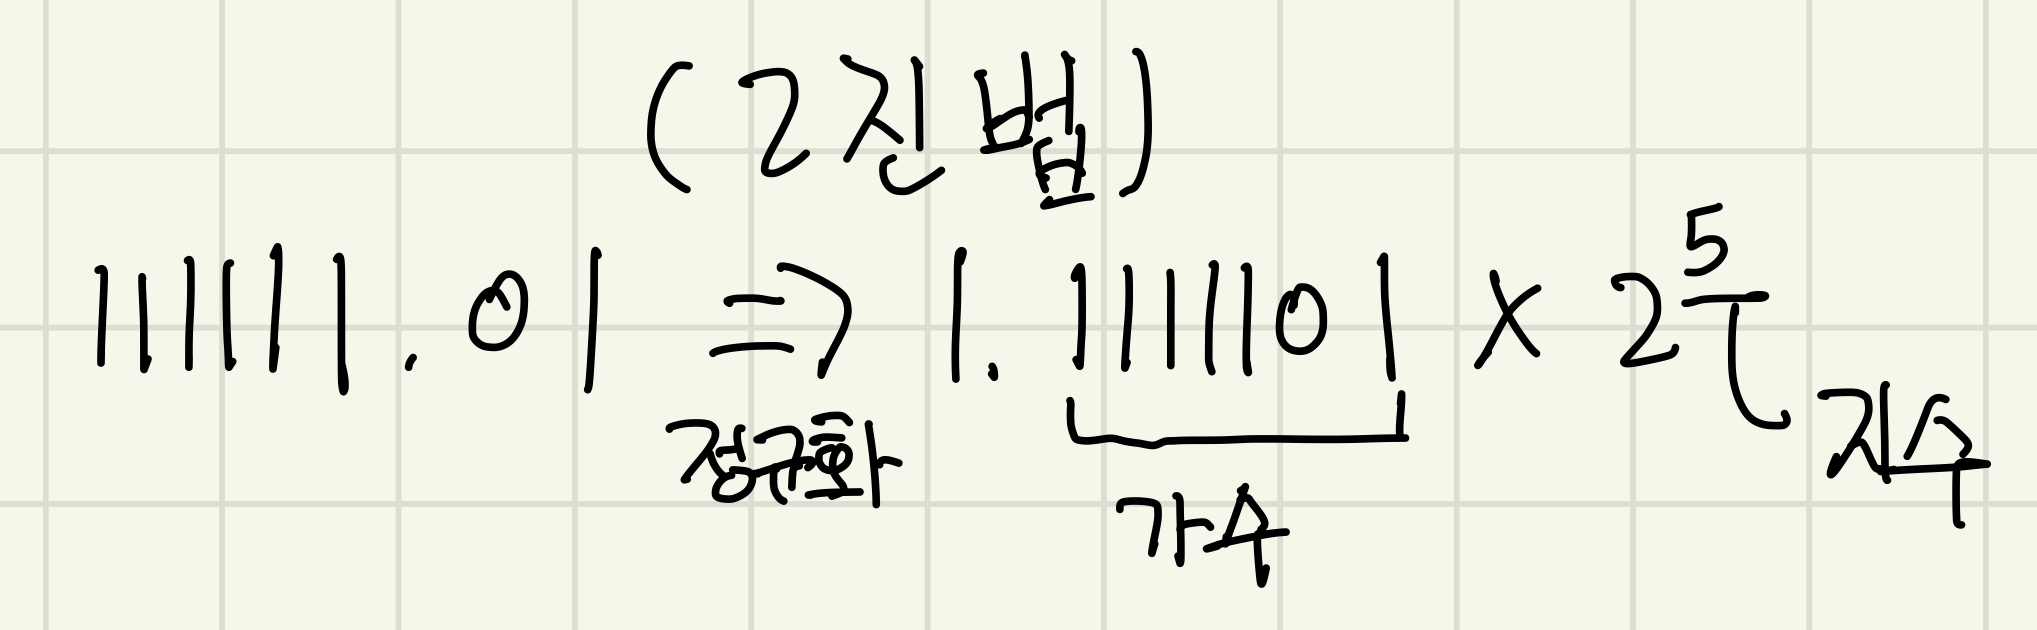 (2진법)
111111.01 ⇒ 1.1111101 × 2⁵
정규화 가수 지수